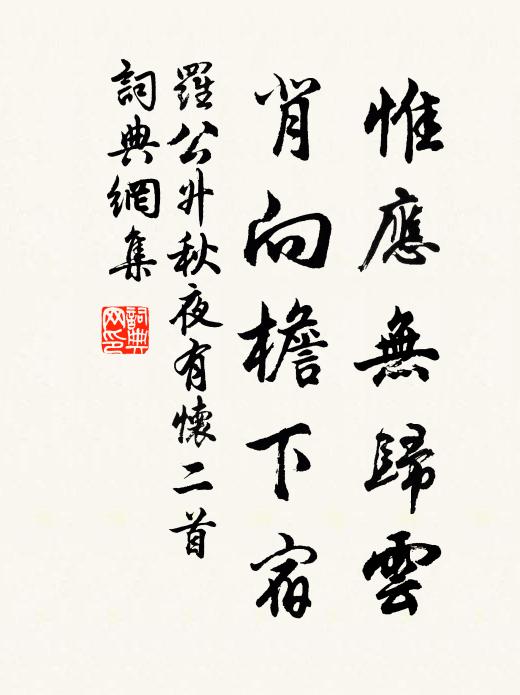 惟應無歸雲
肯向檐下宿
羅公升秋夜有懷二首
詞典網集
詞典网印